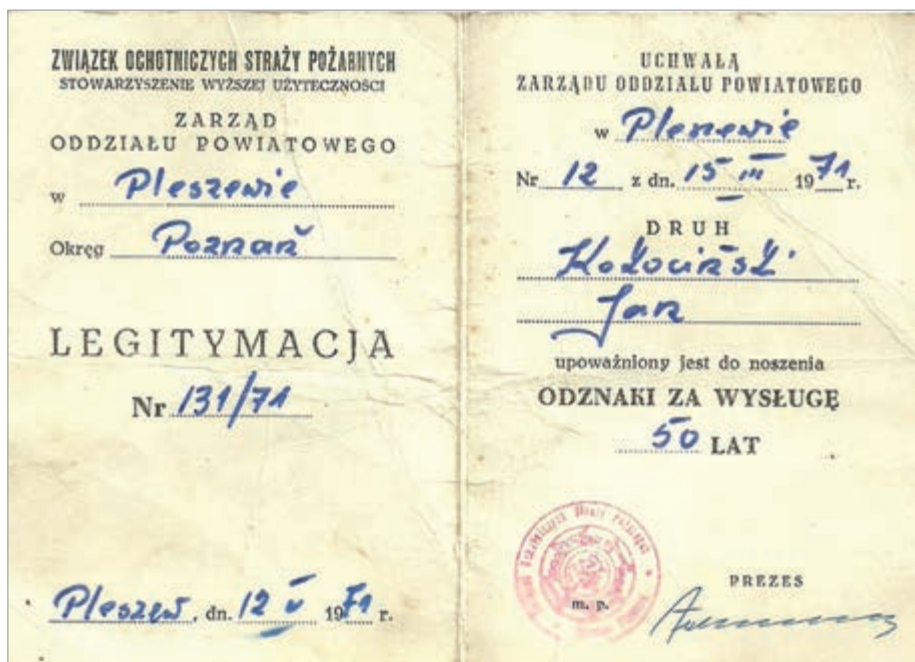 ZWIĄZEK OCHOTNICZYCH STRAŻY POŻARNYCH
STOWARZYSZENIE WYŻSZEJ UŻYTECZNOŚCI
ZARZĄD
ODDZIAŁU POWIATOWEGO
w Pleszewie
Okręg Poznań
LEGITYMACJA
Nr 131/71
Pleszew, dn. 12 V 1971 r.
UCHWAŁĄ
ZARZĄDU ODDZIAŁU POWIATOWEGO
w Pleszewie
Nr 12 z dn. 15 III 1971 r.
DRUH
Kołociński
Jan
upoważniony jest do noszenia
ODZNAKI ZA WYSŁUGĘ
50 LAT
m. p.
PREZES